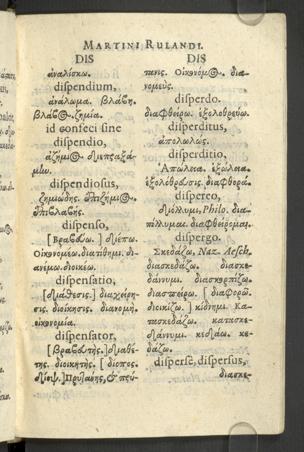 MARTINI RULANDI.
DIS
ἀναλίσκω.
dispendium,
ἀνάλωμα. βλάβη.
βλάβος. ζημία.
id confeci sine
dispendio,
dispendiosus,
ζημιώδης. ἐπιζήμιος.
ἐπιβλαβής.
dispenso,
[Βραβεύω.] νέμω.
Οἰκονομέω. διατίθημι. δι-
ανέμω. διοικέω.
dispensatio,
[διάθεσις.] διαχείρη-
σις. διοίκησις. διανομή.
οἰκονομία.
dispensator,
[βραβευτής.] διαθέ-
της. διοικητής. [δίοπος.
DIS
τανις. Οἰκονόμος. δια-
νομεύς.
disperdo.
διαφθείρω. ἐξολοθρεύω.
disperditus,
ἀπολωλώς.
disperditio,
Ἀπώλεια. ἐξώλεια.
ἐξολόθρευσις. διαφθορά.
dispereo,
διόλλυμι, Philo. δια-
διαφθείρομαι.
dispergo.
Σκεδάζω, Naz. Aesch.
διασκεδάζω. διασκε-
δάννυμι. διασκορπίζω.
διασπείρω. [διαφορῶ.
διοικίζω.] κίδνημι. Κα-
τασκεδάζω. κατασκε-
δάννυμι. κεδάω. κε-
δάζω.
disperse, dispersus,
διασκε-